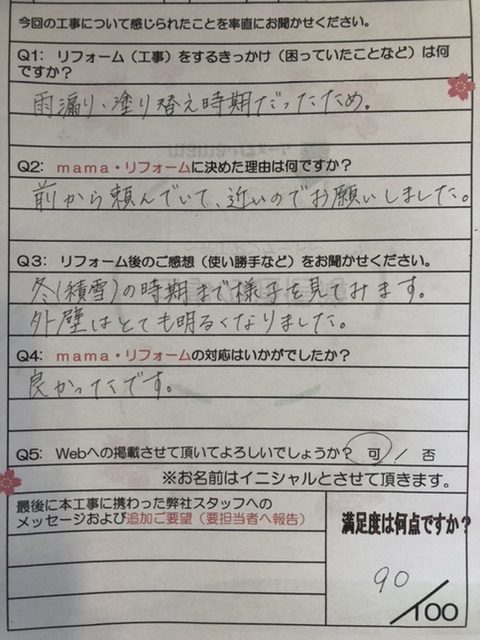 今回の工事について感じられたことを率直にお聞かせください。
Q1: リフォーム（工事）をするきっかけ（困っていたことなど）は何
ですか？
雨漏り、塗り替え時期だったため。
Q2: mama・リフォームに決めた理由は何ですか？
前から頼んでいて、近いのでお願いしました。
Q3: リフォーム後のご感想（使い勝手など）をお聞かせください。
冬(積雪)の時期まで様子を見てみます。
外壁はとても明るくなりました。
Q4: mama・リフォームの対応はいかがでしたか？
良かったです。
Q5: Webへの掲載させて頂いてよろしいでしょうか？ 可 / 否
※お名前はイニシャルとさせて頂きます。
最後に本工事に携わった弊社スタッフへの
メッセージおよび追加ご要望（要担当者へ報告）
満足度は何点ですか？
90/100